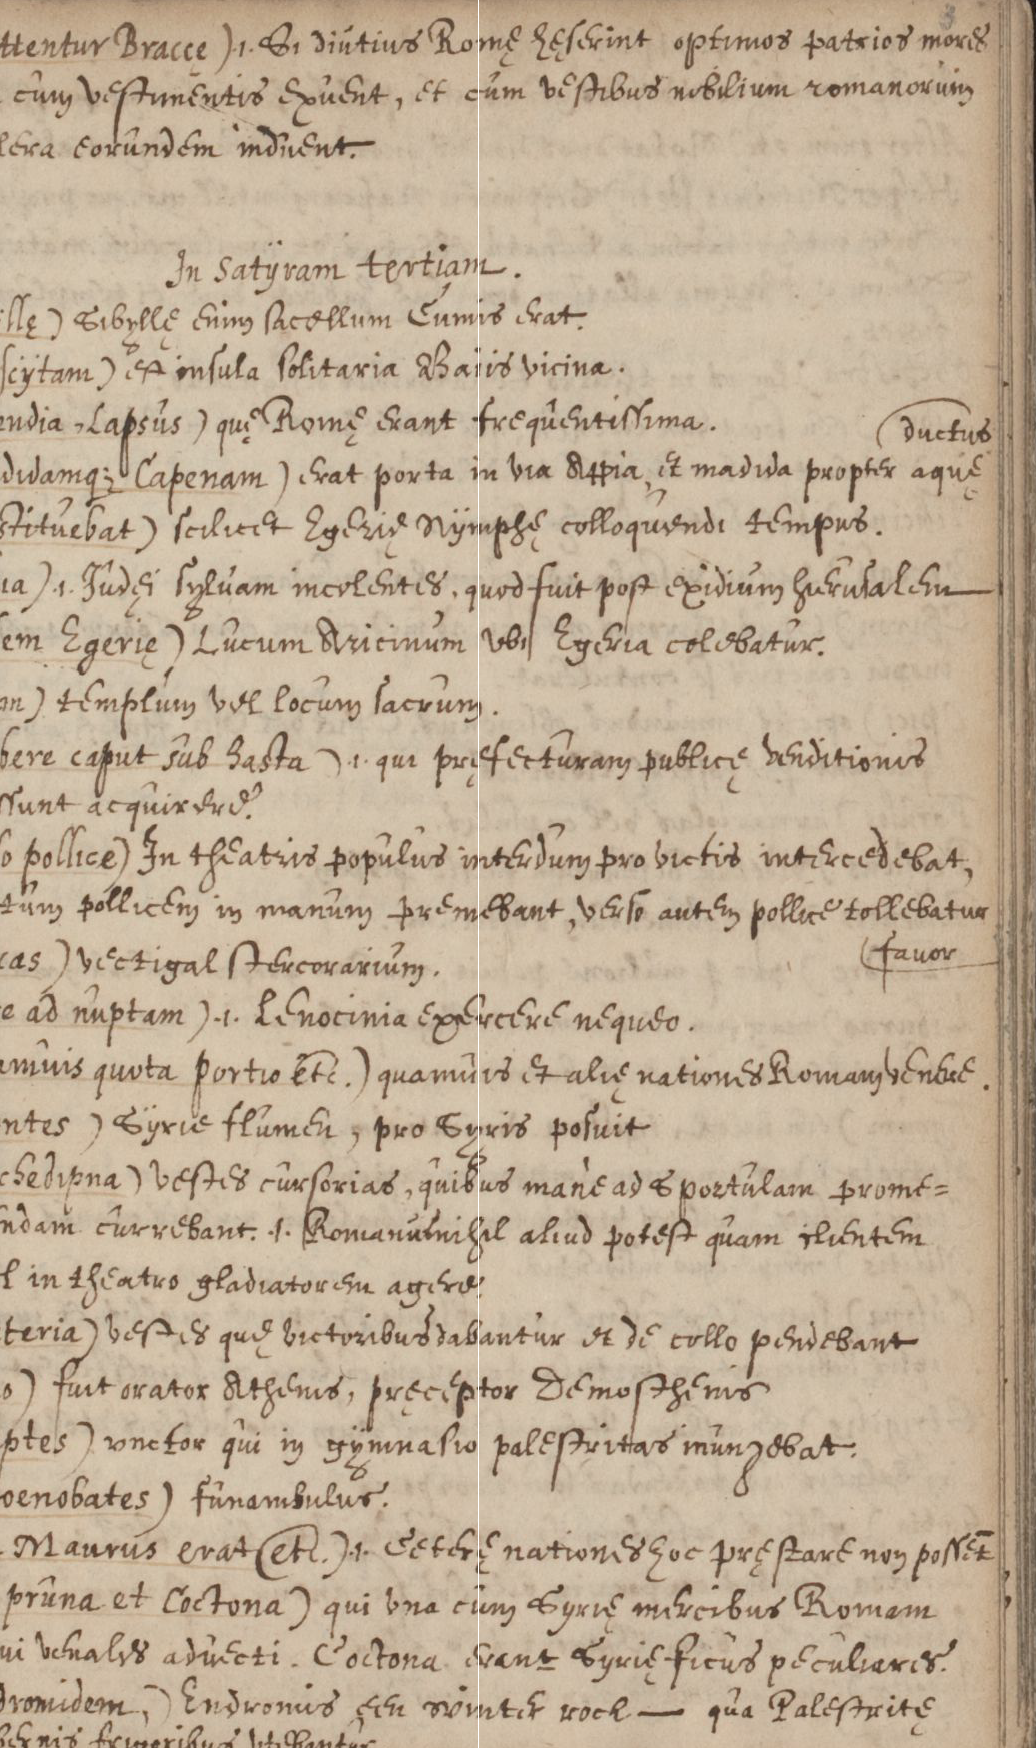 ttentur Braccę) .i. Si diutius Romę hęserint optimos patrios mores
cum vestimentis exuent, et cum vestibus nobilium romanorum
lera eorundem induent.
In Satÿram tertiam.
llę) Sibyllę enim sacellum Cumis erat.
scÿtam) est insula solitaria Baiis vicina.
endia, Lapsus) quę Romę erant frequentissima.
didamq; Capenam) erat porta in via Appia, et madida propter aquę (ductus
stituebat) scilicet Egerię Nÿmphę colloquendi tempus.
ia) .i. Judęi sylvam incolentes, quod fuit post exidium hierusalem
lem Egerię) Lucum Aricinum ubi Egeria colebatur.
m) templum vel locum sacrum.
bere caput sub hasta) .i. qui pręfecturam publicę venditionis
ssunt acquirere.
so pollice) In theatris populus interdum pro victis intercedebat,
tum pollicem in manum premebant, verso autem pollice tollebatur (favor
cas) vectigal stercorarium.
e ad nuptam) .i. Lenocinia exercere nequeo.
amuis quota portio etc.) quamuis et alię nationes Romam venere.
ntes) Sÿrie flumen, pro Syris posuit
chedipna) vestes cursorias, quibus mane ad Sportulam prome=
ndam currebant. .i. Romanus nihil aliud potest quam clientem
l in theatro gladiatorem agere.
teria) vestes quę victoribus dabantur et de collo pendebant
o) fuit orator Athenis, pręceptor Demosthenis
ptes) unctor qui in gÿmnasio palestritas inungebat.
oenobates) funambulus.
Maurus erat (etc.) .i. Ceterę nationes hoc pręstare non possēt
pruna et Coctona) qui una cum Syrię mercibus Romam
ui venales advecti. Coctona erant Syrię ficus peculiares.
dromidem,) Endromis een winter rock — qua Palestritę
bernis frigoribus utebantur